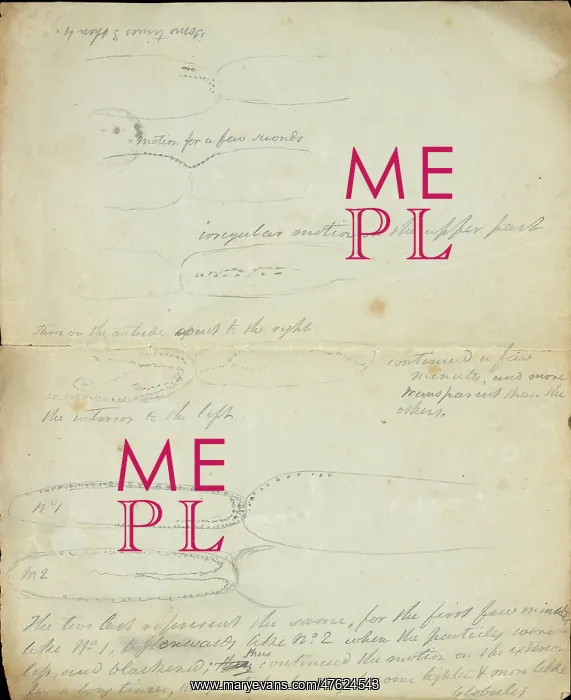 sometimes 3 often 4.
motion for a few seconds
irregular motion on the upper part
Those on the outside apart to the right
continued a few
minutes, and more
transparent than the
others.
the interior to the left
No 1
No 2
The two last represent the same, for the first few minutes
like No 1, afterwards like No 2 when the particles were
less, and blackened, thus continued the motion on the exterior
for a long time, lighter & more like
globules
ME
PL
ME
PL
www.maryevans.com/47624543